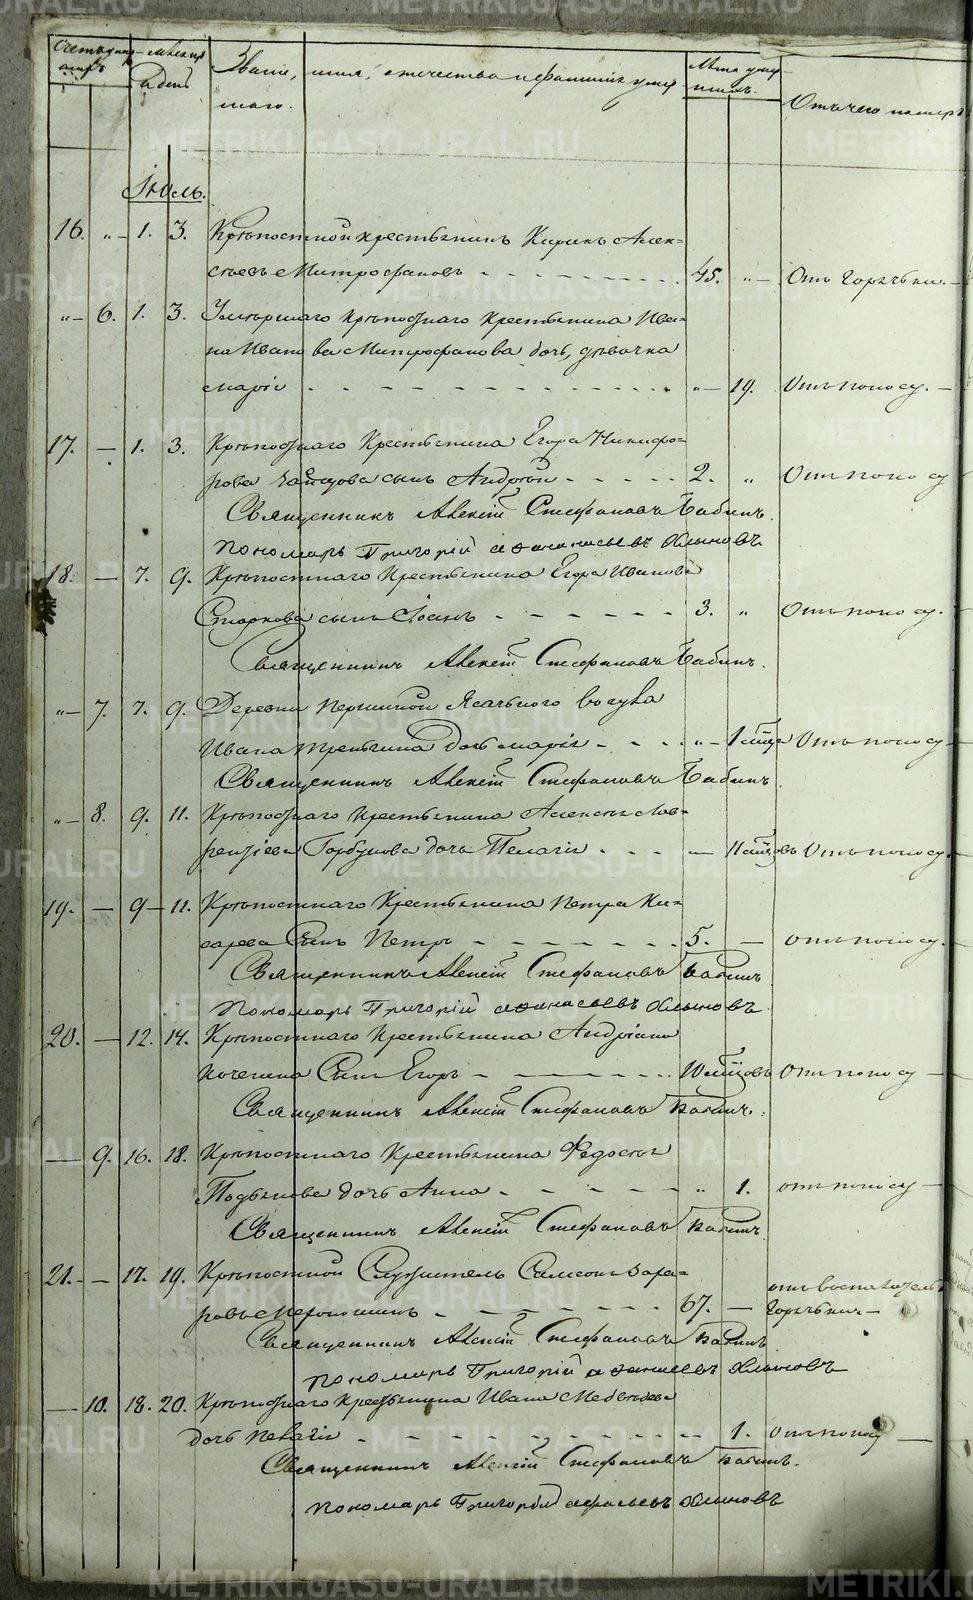 Счетъ умер- Мѣсяцъ
шихъ и день
Званіе, имя, отечество и фамилія умер-
шаго.
Лѣта умер-
шихъ.
Отъ чего померъ
Іюль.
16. „– 1. 3. Крѣпостной крестьянинъ Кирикъ Алек-
сѣевъ Митрофановъ 45. „– Отъ горячки. –
„– 6. 1. 3. Умершаго крѣпостнаго крестьянина Ива-
на Иванова Митрофанова дочь, дѣвочка
Марія „– 19. Отъ поносу. –
17. – 1. 3. Крѣпостнаго Крестьянина Егора Никифо-
рова Зайцова сынъ Андрей 2. „ Отъ поносу
Священникъ Алексій Стефановъ Бабинъ.
Пономарь Григорій Афанасьевъ Хлыновъ
18. – 7. 9. Крѣпостнаго Крестьянина Егора Иванова
Старкова сынъ Іоанъ 3. „ Отъ поносу.
Священникъ Алексій Стефановъ Бабинъ.
„– 7. 7. 9. Деревни Першиной Ясачного вогула
Ивана дочь Марія „– 1 мѣся Отъ поносу –
Священникъ Алексій Стефановъ Бабинъ.
„– 8. 9. 11. Крѣпостнаго Крестьянина Алексѣя Лав-
рентіева Горбунова дочь Пелагія – 11 мѣсцовъ Отъ поносу. –
19. – 9 – 11. Крѣпостнаго Крестьянина Петра Ки-
сарева Сынъ Петръ 5. – отъ поносу.
Священникъ Алексій Стефановъ Бабинъ
Пономарь Григорій Афанасьевъ Хлыновъ
20. – 12. 14. Крѣпостнаго Крестьянина Андріана
Сынъ Егоръ 10 мѣсцовъ Отъ поносу –
Священникъ Алексій Стефановъ Бабинъ.
– 9. 16. 18. Крѣпостнаго Крестьянина Федосѣя
дочь Анна „ 1. отъ поносу –
Священникъ Алексій Стефановъ Бабинъ
21. – – 17. 19. Крѣпостной Служитель Самсонъ Заха-
ровъ 67. – отъ воспалительн
горячки –
Священникъ Алексій Стефановъ Бабинъ
Пономарь Григорій Хлыновъ
– 10. 18. 20. Крѣпостнаго Крестьянина Ивана Медведева
дочь Пелагія 1. отъ поносу –
Священникъ Алексій Стефановъ Бабинъ.
Пономарь Григорій Хлыновъ
METRIKI.GASO-URAL.RU